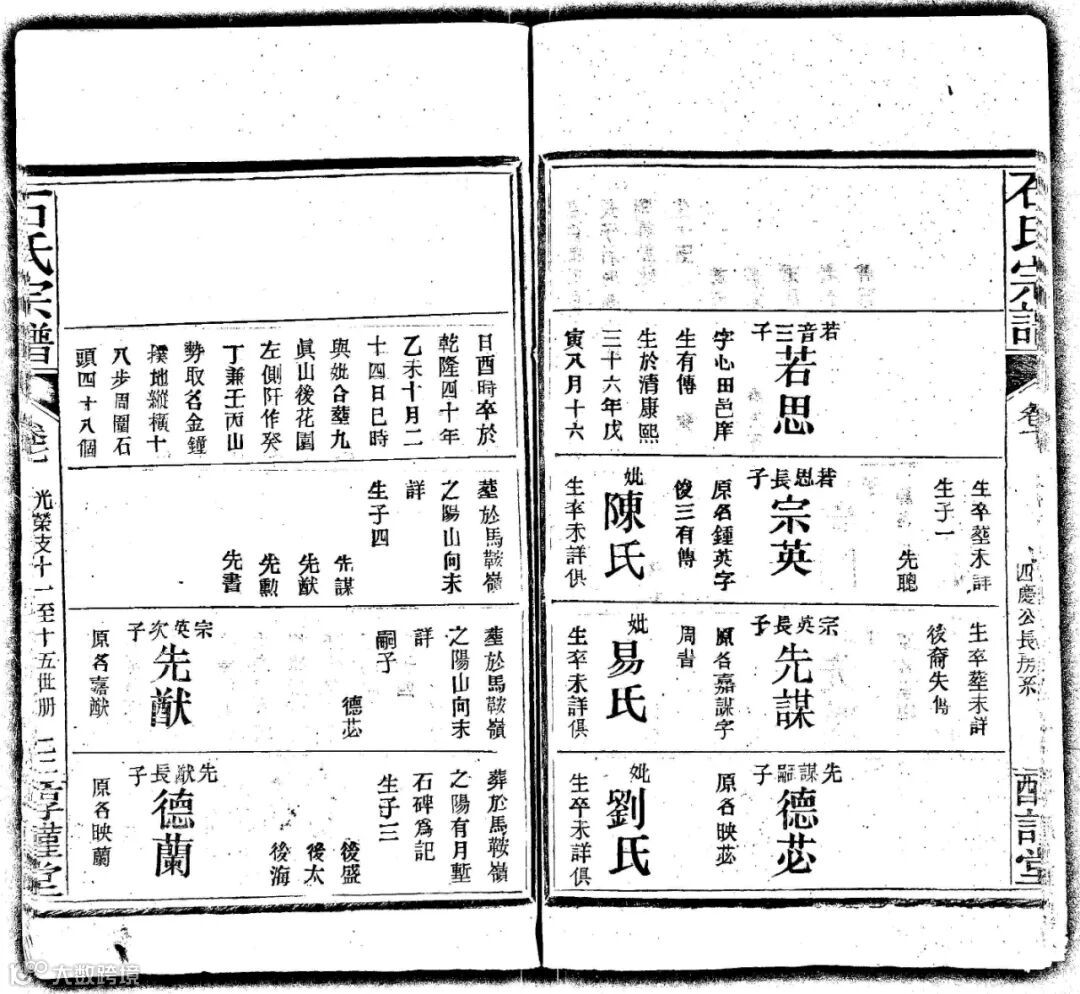 石氏宗譜
卷七
四慶公長房系
若思
若音三子
字心田邑庠
生有傳
生於清康熙
三十六年戊
寅八月十六
生卒葬未詳
生子一
先聰
宗英
若思長子
原名鍾英字
俊三有傳
妣
陳氏
生卒未詳俱
生卒葬未詳
後裔失傳
先謀
宗英長子
原名嘉謀字
周書
妣
易氏
生卒未詳俱
德苾
先謀嗣子
原名映苾
妣
劉氏
生卒未詳俱
日酉時卒於
乾隆四十年
乙未十月二
十四日巳時
與妣合塟九
眞山後花園
左側阡作癸
丁兼壬丙山
勢取名金鐘
撲地縱橫十
八步周圍石
頭四十八個
塟於馬鞍嶺
之陽山向未
詳
生子四
先謀
先猷
先勳
先書
塟於馬鞍嶺
之陽山向未
詳
嗣子
德苾
先猷
宗英次子
原名嘉猷
葬於馬鞍嶺
之陽有月塹
石碑爲記
生子三
後盛
後太
後海
德蘭
先猷長子
原名映蘭
石氏宗譜
卷七
光榮支十一至十五世册
二二
惇謹堂
大数跨境